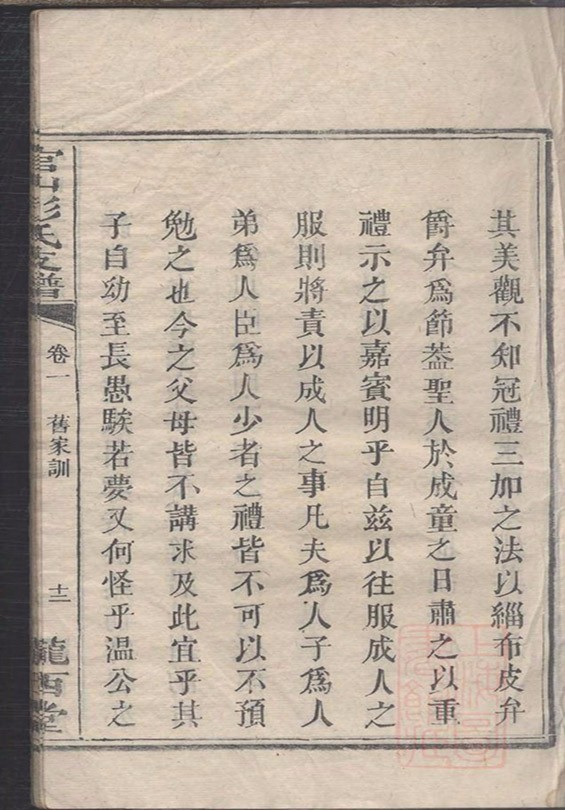 其美觀不知冠禮三加之法以緇布皮弁
爵弁爲節蓋聖人於成童之日肅之以重
禮示之以嘉賓明乎自兹以往服成人之
服則將責以成人之事凡夫爲人子爲人
弟爲人臣爲人少者之禮皆不可以不預
勉之也今之父母皆不講求及此宜乎其
子自幼至長愚騃若夢又何怪乎温公之
官山彭氏支譜
卷一
舊家訓
十二
隴西堂